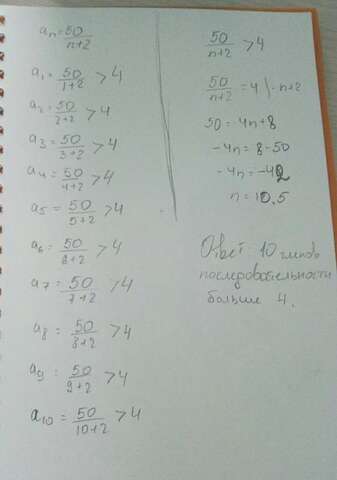 aₙ = 50/(n+2)
a₁ = 50/(1+2) > 4
a₂ = 50/(2+2) > 4
a₃ = 50/(3+2) > 4
a₄ = 50/(4+2) > 4
a₅ = 50/(5+2) > 4
a₆ = 50/(6+2) > 4
a₇ = 50/(7+2) > 4
a₈ = 50/(8+2) > 4
a₉ = 50/(9+2) > 4
a₁₀ = 50/(10+2) > 4
50/(n+2) > 4
50/(n+2) = 4 | · n+2
50 = 4n+8
-4n = 8-50
-4n = -42
n = 10.5
Ответ 10 членов
последовательности
больше 4.